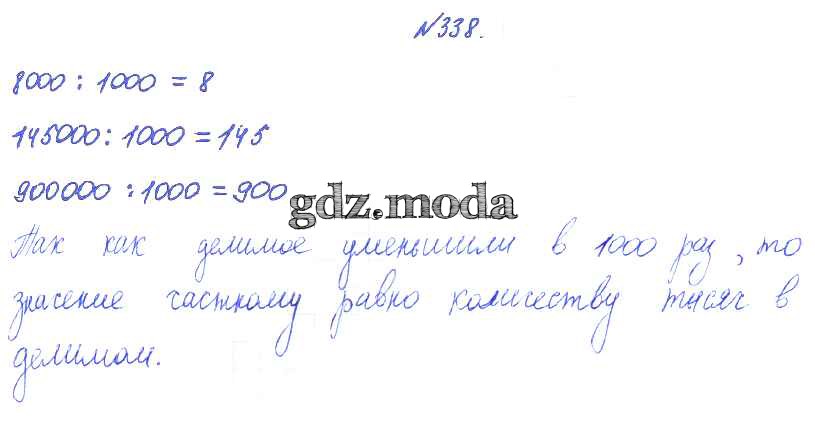 №338.
8000 : 1000 = 8
145000 : 1000 = 145
900000 : 1000 = 900
gdz.moda
Так как делимое уменьшили в 1000 раз, то
значение частному равно количеству тысяч в
делимом.